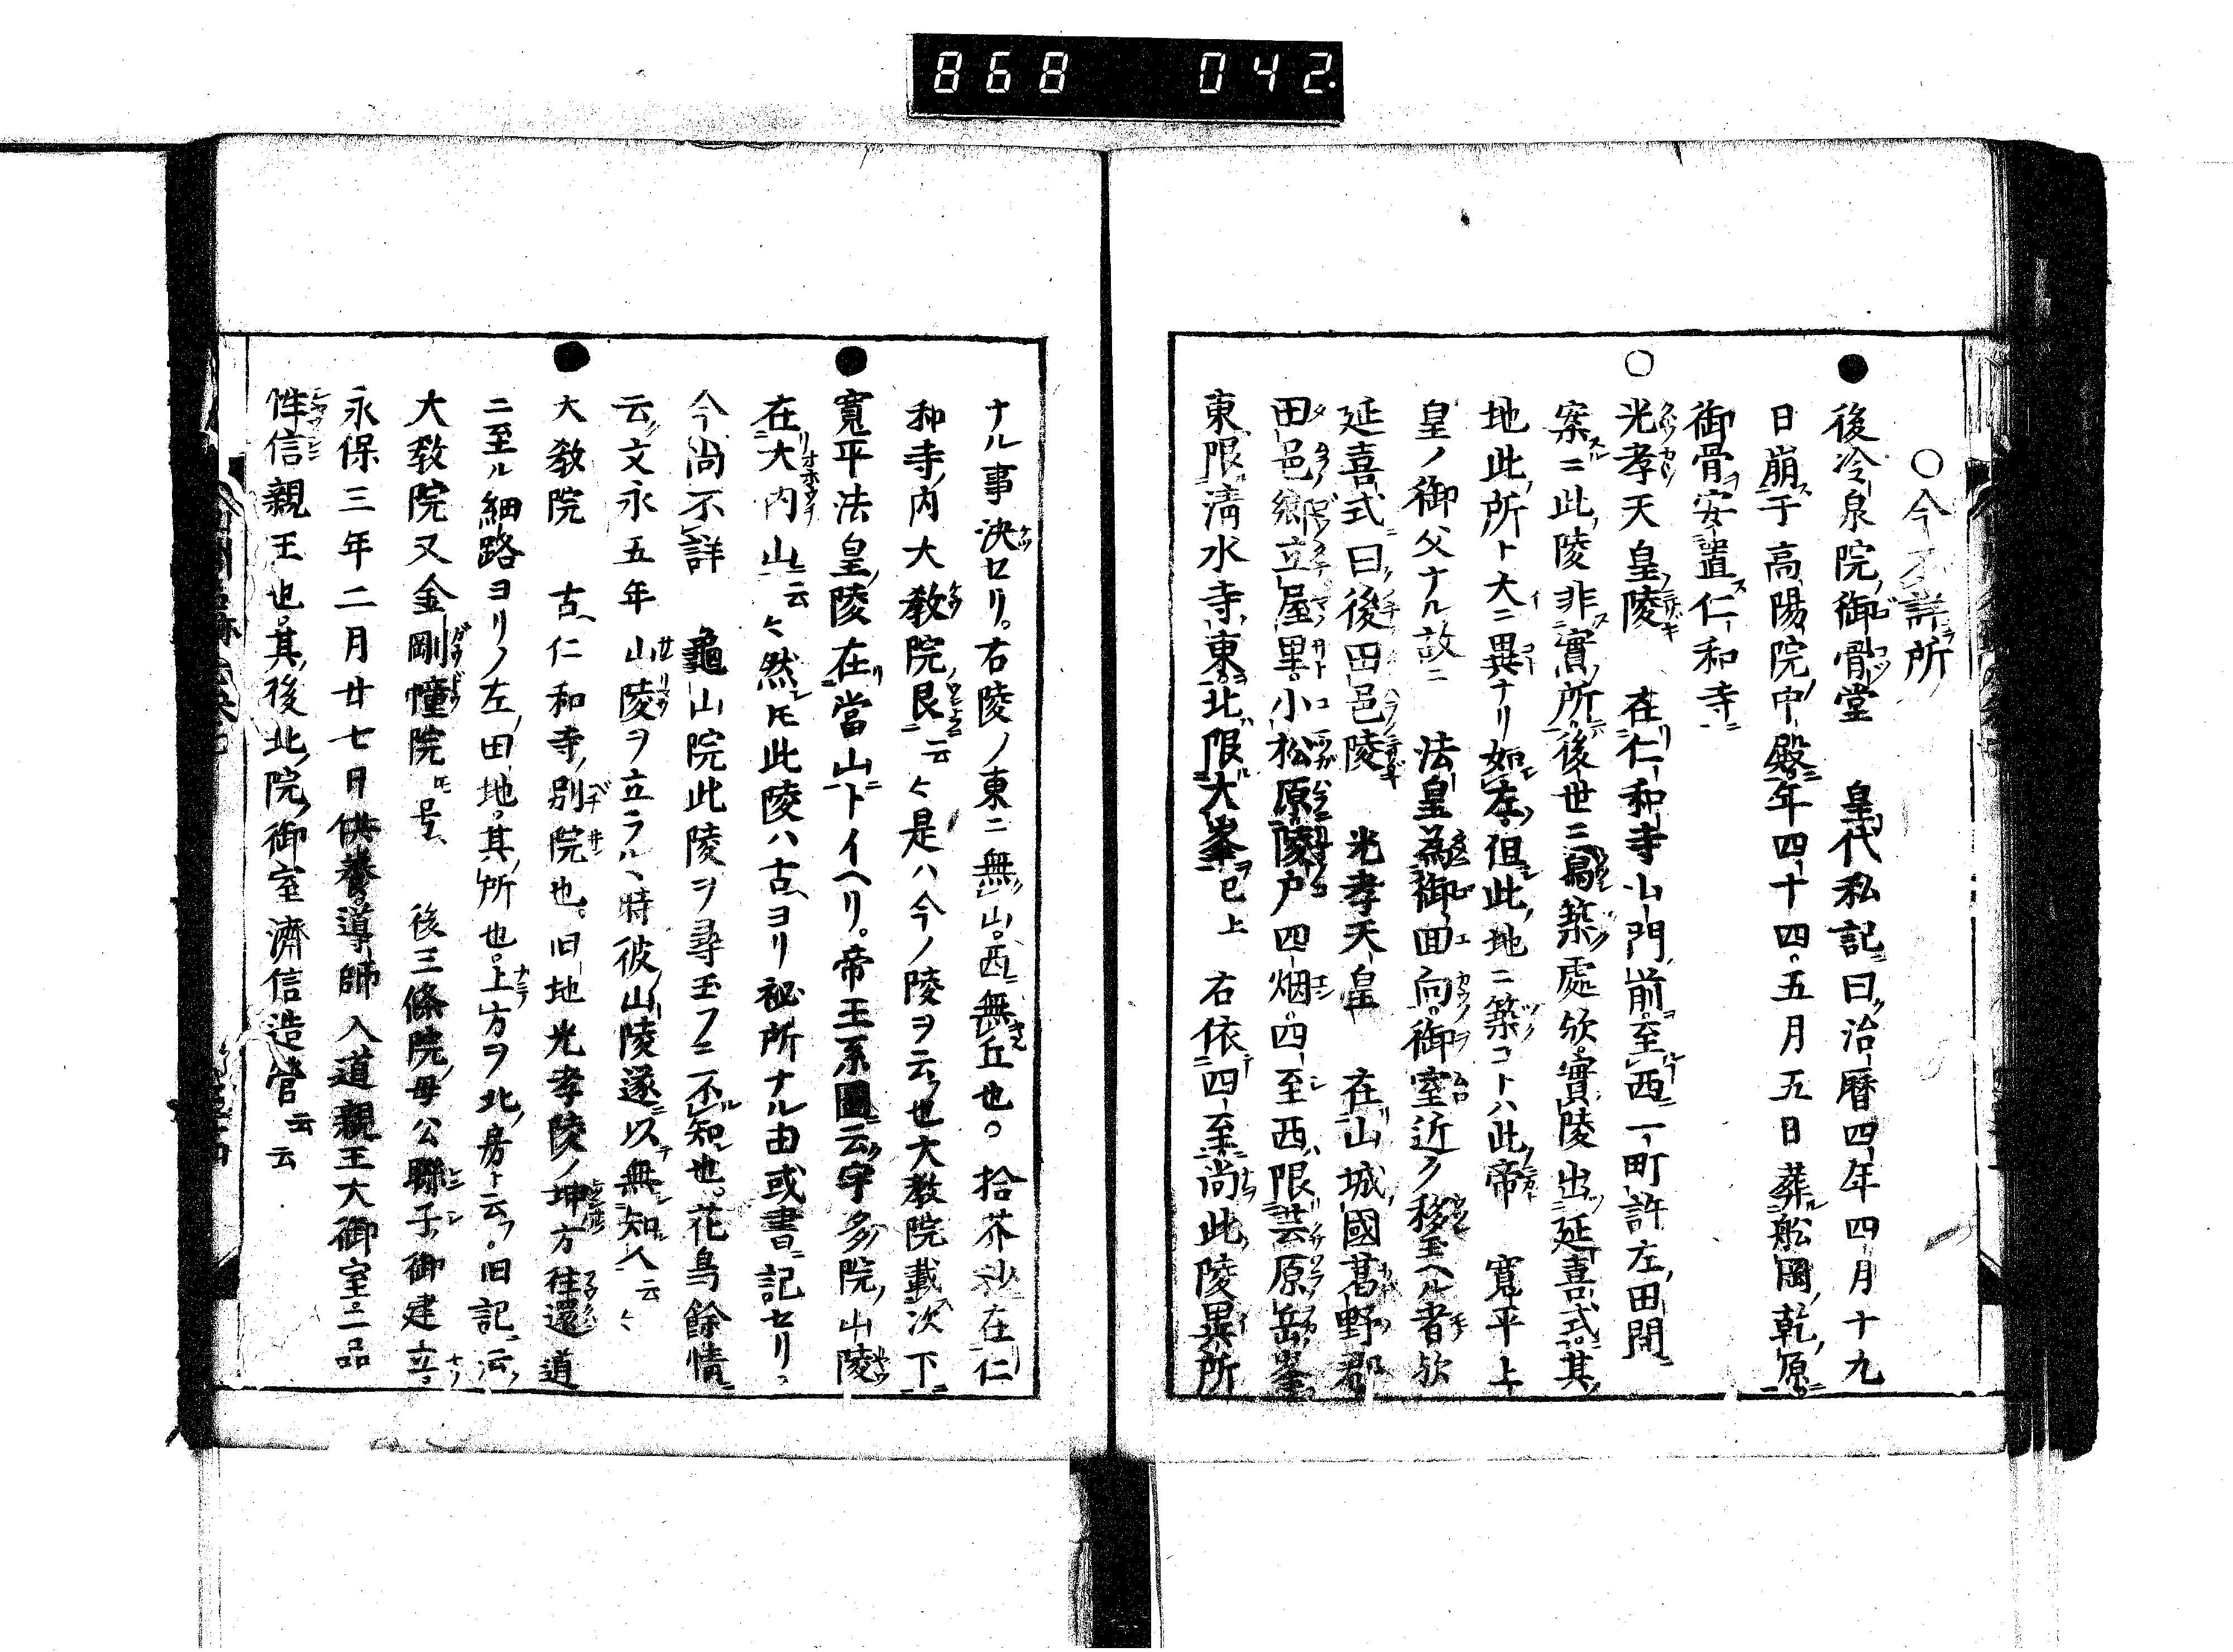 868 042.
○今不詳所
●後冷泉院御骨堂 皇代私記曰治暦四年四月十九
日崩于高陽院中殿年四十四五月五日葬船岡乾原
御骨安置仁和寺
○光孝天皇陵 在仁和寺山門前至西一町許左田間
案ニ此陵非實所後世ニ為築處欤實陵出延喜式其
地此所ト大ニ異ナリ如左但此地ニ築コトハ此帝 寛平上
皇ノ御父ナル故ニ 法皇為御回向御室近ク移玉ヘル者欤
延喜式曰後田邑陵 光孝天皇 在山城國葛野郡
田邑郷立屋里小松原陵戸四烟四至西限芸原岳峯
東限清水寺東北限大峯已上 右依四至尚此陵異所
ナル事決セリ右陵ノ東ニ無山西無丘也○拾芥沙在仁
和寺内大教院艮云々是ハ今ノ陵ヲ云也大教院載次下
●寛平法皇陵在當山トイヘリ。帝王系圖云宇多院山陵
在大内山云々然𪜈此陵ハ古ヨリ秘所ナル由或書記セリ。
今尚不詳 龜山院此陵ヲ尋玉フニ不知也花鳥餘情
云文永五年山陵ヲ立ラル丶時彼山陵遂以無知人云々
●大教院 古仁和寺別院也旧地光孝陵ノ坤方往還道
ニ至ル細路ヨリノ左田地其所也上方ヲ北房ト云フ。旧記云
大教院又金剛幢院𪜈号 後三條院母公聯子御建立
永保三年二月廿七日供養導師入道親王大御室二品
性信親王也其後北院御室濟信造営云云